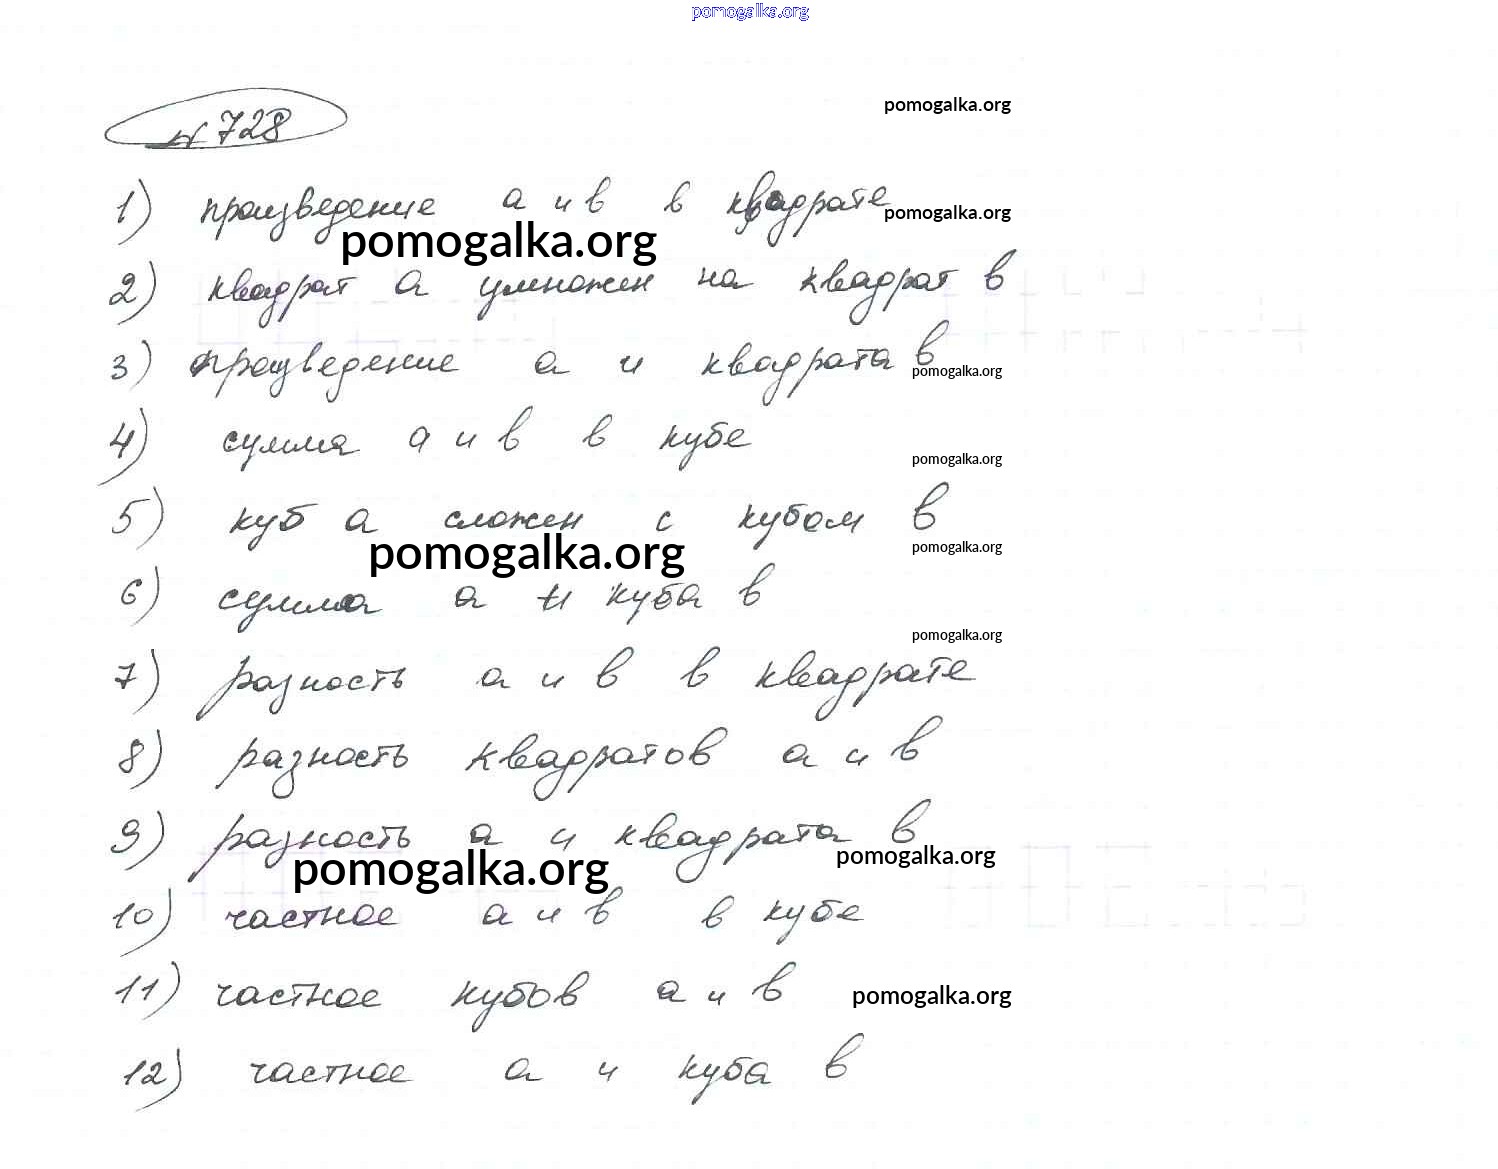 pomogalka.org
pomogalka.org
№ 728
1) произведение a и b в квадрате
pomogalka.org
pomogalka.org
2) квадрат a умножен на квадрат b
3) произведение a и квадрата b
pomogalka.org
4) сумма a и b в кубе
pomogalka.org
5) куб a сложен с кубом b
pomogalka.org
pomogalka.org
6) сумма a и куба b
pomogalka.org
7) разность a и b в квадрате
8) разность квадратов a и b
9) разность a и квадрата b
pomogalka.org
pomogalka.org
10) частное a и b в кубе
11) частное кубов a и b
pomogalka.org
12) частное a и куба b